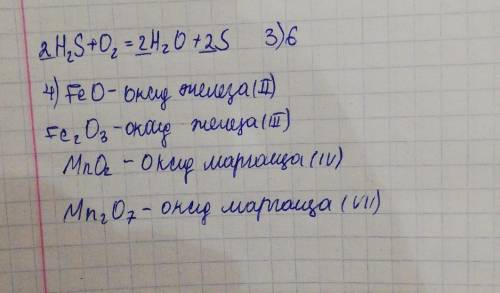 2H₂S+O₂=2H₂O+2S 3)6
4) FeO - оксид железа (II)
Fe₂O₃ - оксид железа (III)
MnO₂ - оксид марганца (IV)
Mn₂O₇ - оксид марганца (VII)